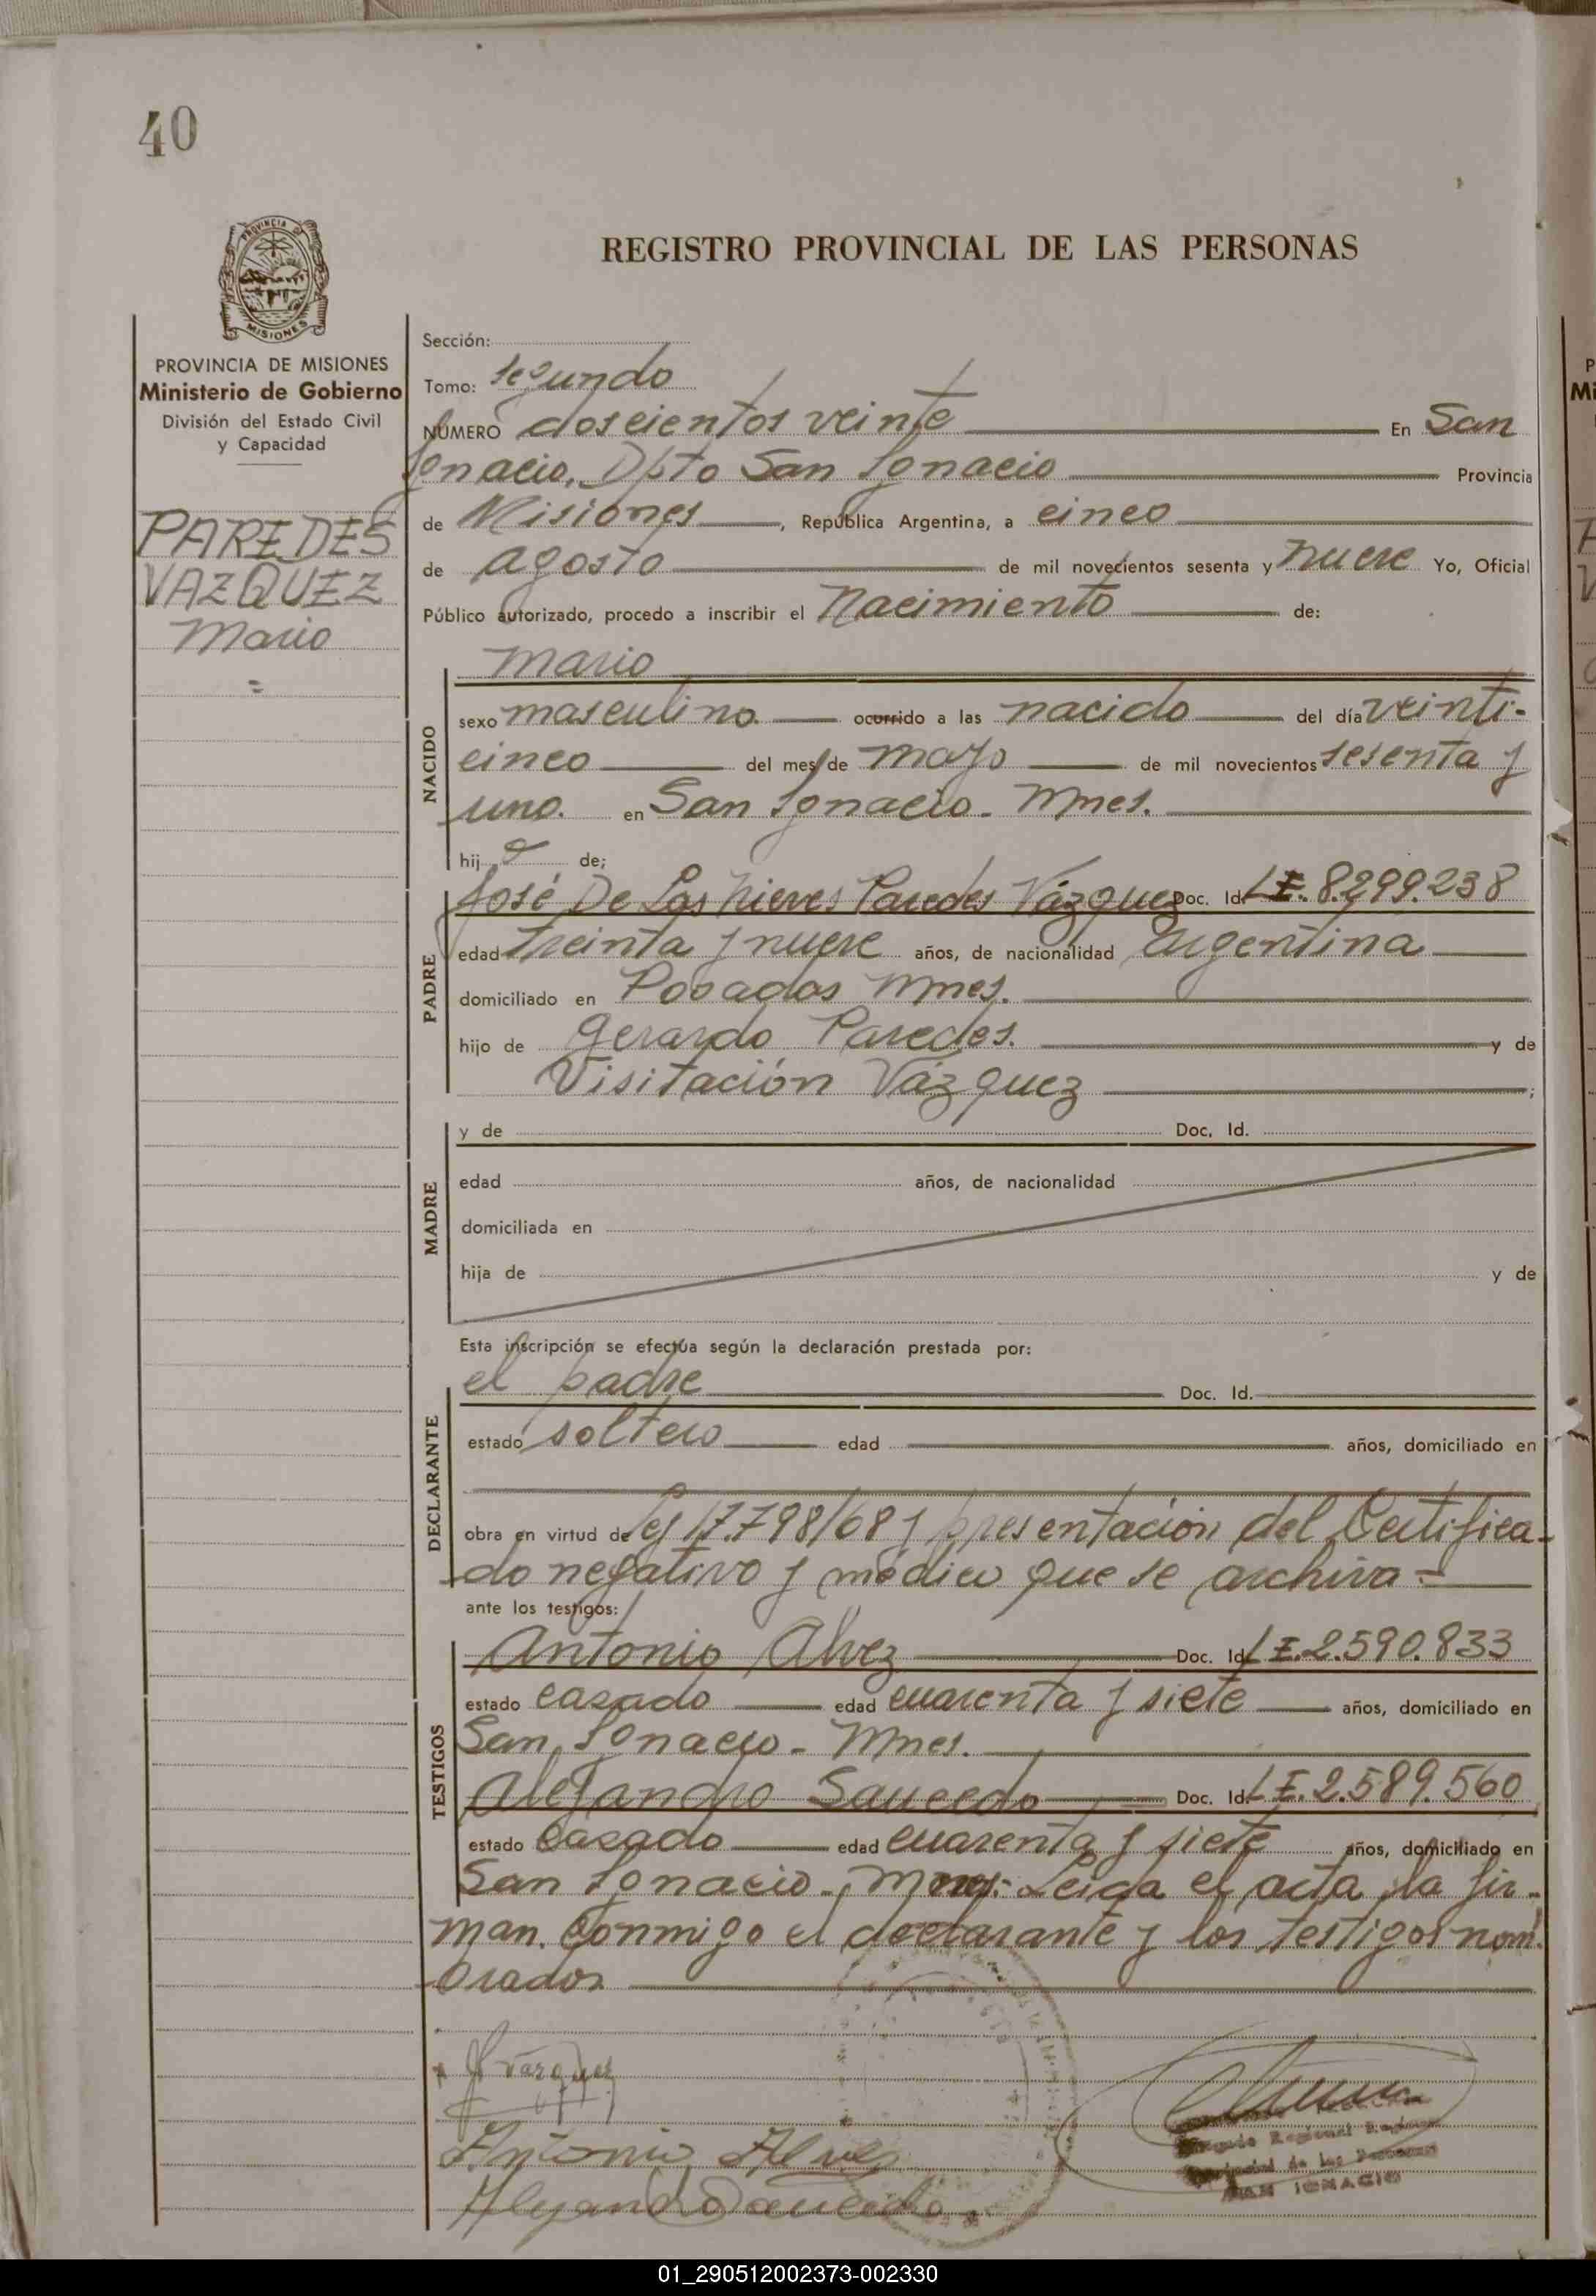 40
PROVINCIA DE
MISIONES
REGISTRO PROVINCIAL DE LAS PERSONAS
PROVINCIA DE MISIONES
Ministerio de Gobierno
División del Estado Civil
y Capacidad
PAREDES
VAZQUEZ
Mario
Sección:
Tomo: Segundo
NÚMERO doscientos veinte En San
Ignacio, Dpto San Ignacio Provincia
de Misiones, República Argentina, a cinco
de agosto de mil novecientos sesenta y nueve Yo, Oficial
Público autorizado, procedo a inscribir el Nacimiento de:
NACIDO
Mario
sexo masculino ocurrido a las nacido del día veinti-
cinco del mes de mayo de mil novecientos sesenta y
uno. en San Ignacio - Mnes.
hij o de;
PADRE
José De Las Nieves Paredes Vázquez Doc. Id. L.E. 8.299.238
edad treinta y nueve años, de nacionalidad argentina
domiciliado en Posadas Mnes.
hijo de Gerardo Paredes. y de
Visitación Vázquez ;
MADRE
y de Doc. Id.
edad años, de nacionalidad
domiciliada en
hija de y de
Esta inscripción se efectúa según la declaración prestada por:
DECLARANTE
el padre Doc. Id.
estado soltero edad años, domiciliado en
obra en virtud de ley 17.798/68 y presentación del Certifica-
do negativo y médico que se archiva =
ante los testigos:
TESTIGOS
Antonio Alvez Doc. Id. L.E. 2.590.833
estado casado edad cuarenta y siete años, domiciliado en
San Ignacio - Mnes.
Alejandro Saucedo Doc. Id. L.E. 2.589.560
estado casado edad cuarenta y siete años, domiciliado en
San Ignacio - Mnes: Leida el acta, la fir-
man. Conmigo el declarante y los testigos nom-
brados
J Vazquez
Antonio Alves
Alejandro Saucedo
Regional
de las Personas
SAN IGNACIO
01_290512002373-002330